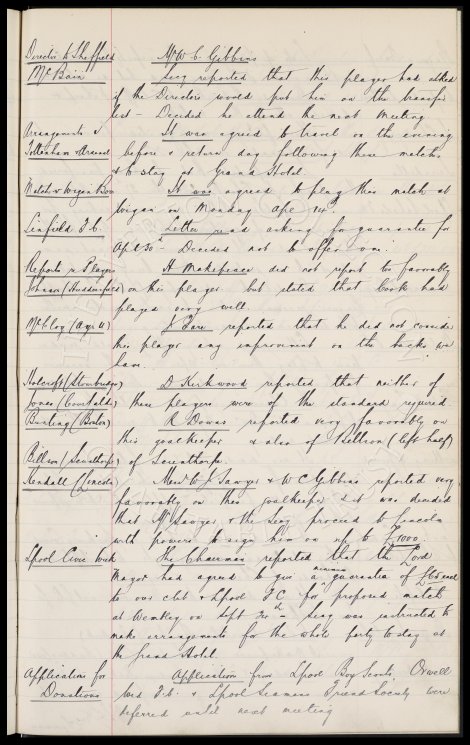 Director to Sheffield Mr W. C. Gibbins
Mc Bain Secy reported that this player had asked
if the Directors would put him on the transfer
list – Decided he attend the next meeting
Arrangements v It was agreed to travel on the evening
Tottenham & Arsenal before & return day following these matches
& to stay at Grand Hotel.
Match v Wigan Boro It was agreed to play this match at
Wigan on Monday Apl 14th.
Linfield F.C. Letter read asking for guarantee for
Apl 30th – Decided not to offer one.
Reports re Players H Makepeace did not report too favorably
Johnson (Huddersfield) on this player but stated that Cook had
played very well
McCloy (Ayr U) J Fare reported that he did not consider
this player any improvement on the backs we
have.
Holcroft (Stourbridge) D Kirkwood reported that neither of
Jones (Coverfields) these players were of the standard required
Bunting (Boston) R Downs reported very favorably on
this goalkeeper & also of Billson (left half)
Billson (Scunthorpe) of Scunthorpe.
Kendall (Lincoln) Messrs W J Sawyer & W C Gibbins reported very
favorably on this goalkeeper & it was decided
that Mr Sawyer & the Secy proceed to Lincoln
with powers to sign him on up to £1000.
Lpool Civic Week The Chairman reported that the Lord
Mayor had agreed to give a minimum guarantee of £65 each
to our club & Lpool F.C. for proposed match
at Wembley on Sept 24th – Secy was instructed to
make arrangements for the whole party to stay at
the Grand Hotel.
Application for Application from Lpool Boy Scouts, Orwell
Donations Wed F.C. & Lpool Seamens Friend Society were
deferred until next meeting